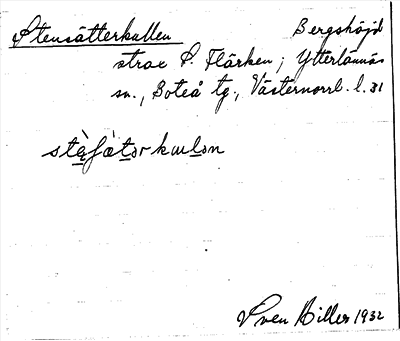 Stensätterkullen Bergshöjd
strax S. Flärken; Ytterlännäs
sn., Boteå tg., Västernorrl. l. 31
Sven Hiller 1932